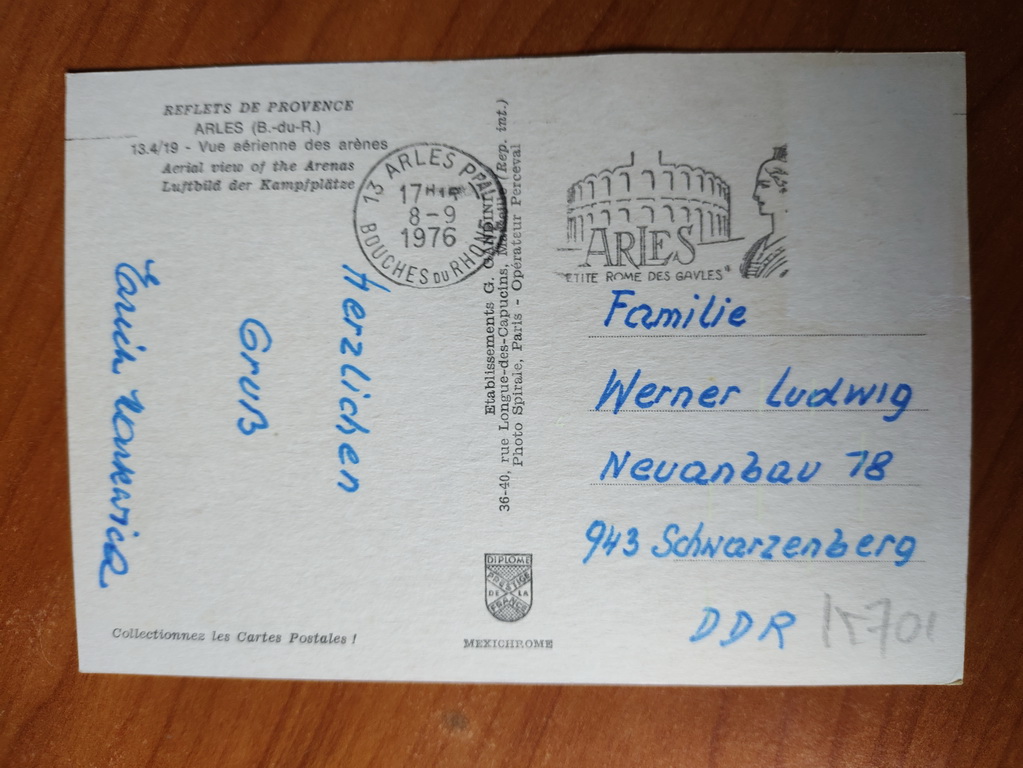 REFLETS DE PROVENCE
ARLES (B.-du-R.)
13.4/19 - Vue aérienne des arènes
Aerial view of the Arenas
Luftbild der Kampfplätze
13 ARLES PPAL
17H
8-9
1976
BOUCHES DU RHONE
ARLES
ETITE ROME DES GAVLES
Herzlichen
Gruß
Etablissements G. GANDINI
36-40, rue Longue-des-Capucins, (Rep. int.)
Photo Spirale, Paris - Opérateur Perceval
Familie
Werner Ludwig
Neuanbau 78
943 Schwarzenberg
DDR
DIPLOME
PRESTIGE
DE LA
FRANCE
MEXICHROME
Collectionnez les Cartes Postales !